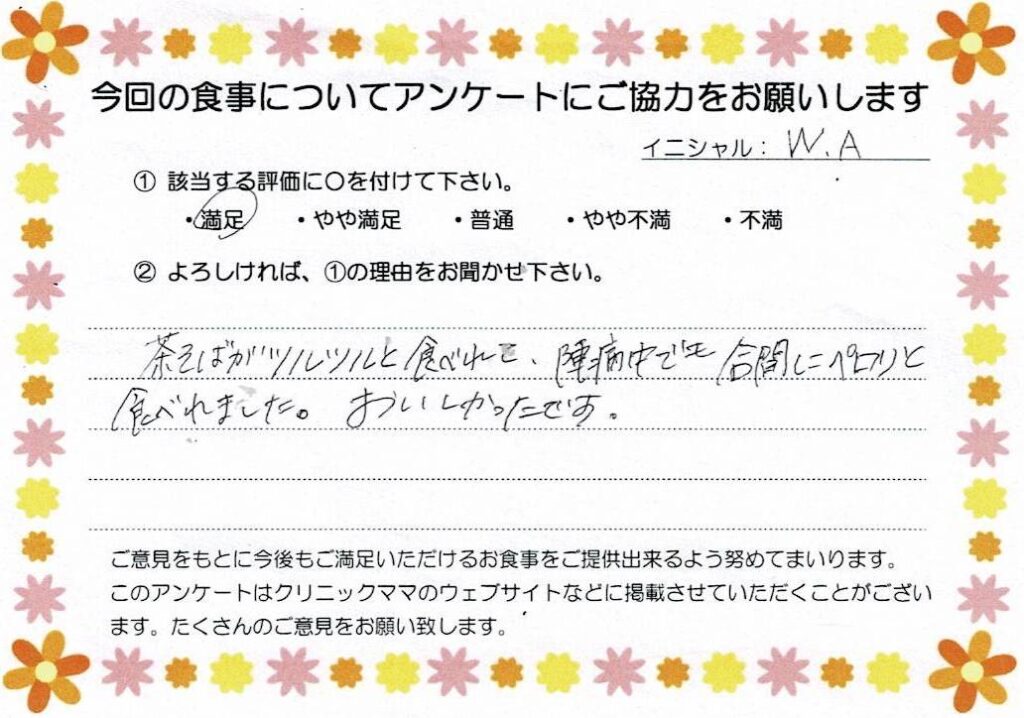 今回の食事についてアンケートにご協力をお願いします
イニシャル： W.A
① 該当する評価に〇を付けて下さい。
・満足 ・やや満足 ・普通 ・やや不満 ・不満
② よろしければ、①の理由をお聞かせ下さい。
茶そばがツルツルと食べれて、陣痛中でも合間にペロリと
食べれました。 おいしかったです。
ご意見をもとに今後もご満足いただけるお食事をご提供出来るよう努めてまいります。
このアンケートはクリニックママのウェブサイトなどに掲載させていただくことがござい
ます。たくさんのご意見をお願い致します。